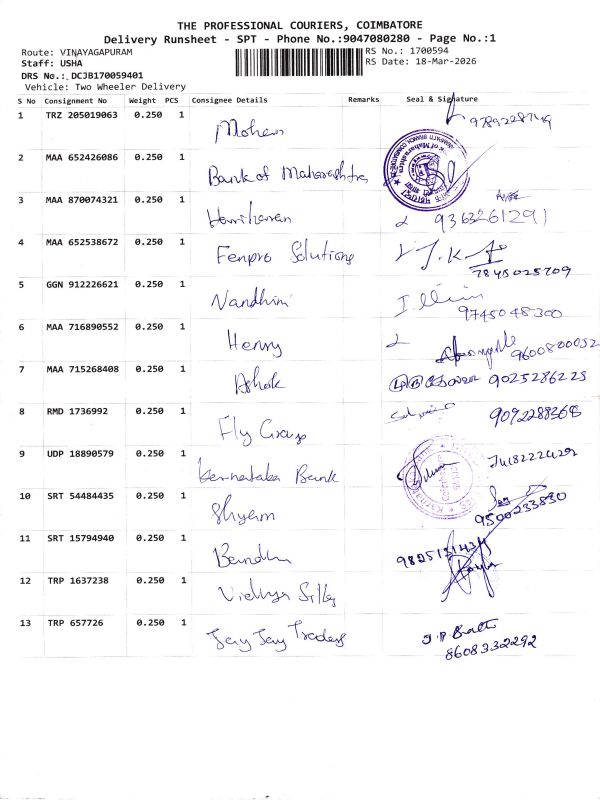 THE PROFESSIONAL COURIERS, COIMBATORE
Delivery Runsheet - SPT - Phone No.:9047080280 - Page No.:1
Route: VINAYAGAPURAM RS No.: 1700594
Staff: USHA RS Date: 18-Mar-2026
DRS No.: DCJB170059401
Vehicle: Two Wheeler Delivery
S No Consignment No Weight PCS Consignee Details Remarks Seal & Signature
1 TRZ 205019063 0.250 1 Mohan
2 MAA 652426086 0.250 1 Bank of Maharashtra
3 MAA 870074321 0.250 1 Hariharan 9363261291
4 MAA 652538672 0.250 1 Fenpro Solutions 7845025709
5 GGN 912226621 0.250 1 Nandhini 9745048300
6 MAA 716890552 0.250 1 Henry 9600800052
7 MAA 715268408 0.250 1 Ashok 9025286225
8 RMD 1736992 0.250 1 Fly Group 9092288368
9 UDP 18890579 0.250 1 Karnataka Bank
10 SRT 54484435 0.250 1 Shyam 9500233830
11 SRT 15794940 0.250 1
12 TRP 1637238 0.250 1 Vidhya Silks
13 TRP 657726 0.250 1 Jay Jay Traders
8608332292